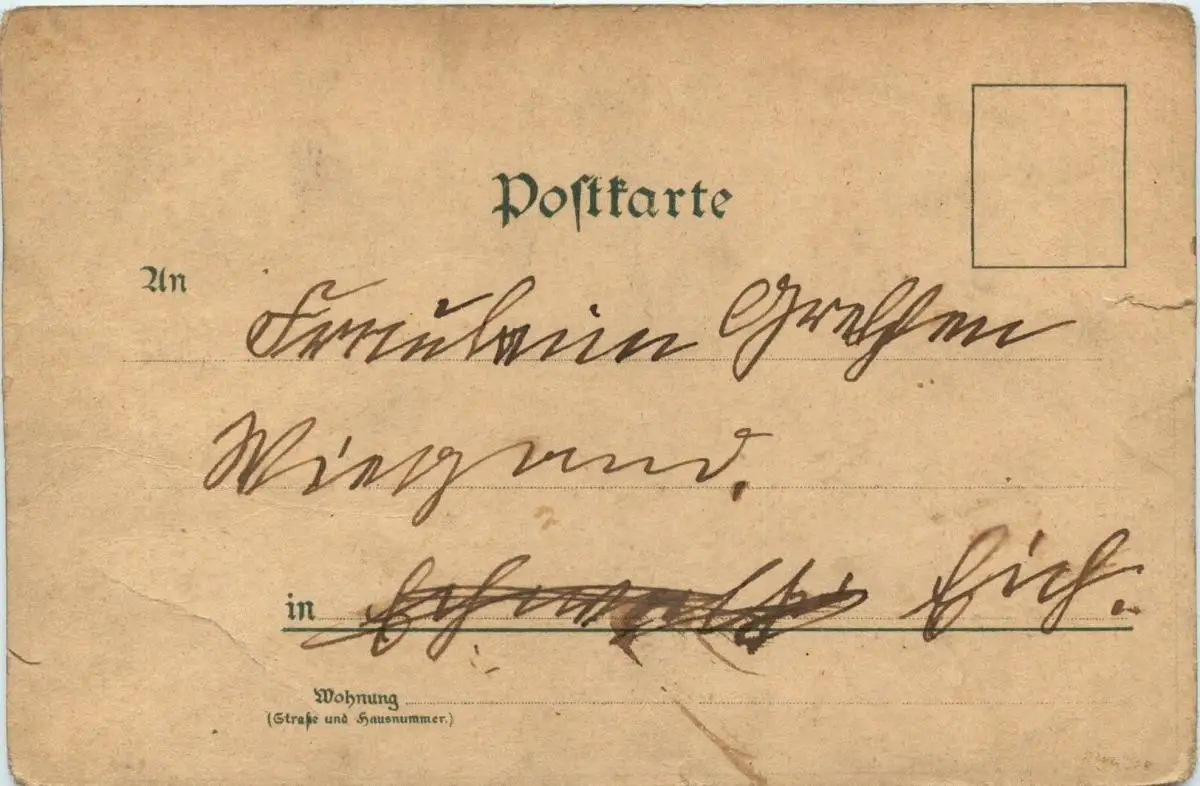 Postkarte
An Fräulein Grethen
Wiegand.
in Eich.
Wohnung
(Straße und Hausnummer.)